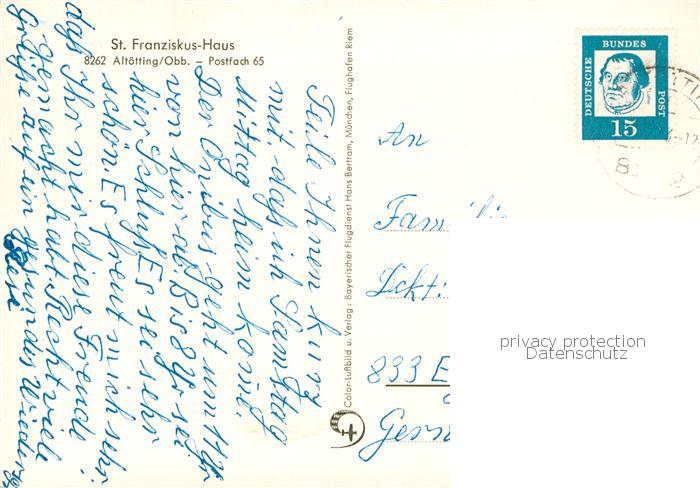 St. Franziskus-Haus
8262 Altötting/Obb. – Postfach 65
Teile Ihnen kurz
mit, daß ich Samstag
Mittag heim kome.
Der Onibus geht um 11 Uhr
von hier ab. Bis 8 Uhr ist
hier Schluß. Es sei sehr
schön. Es freut mich sehr
daß Ihr mir diese Freude
gemacht habt. Recht viele
Grüße auf ein gesundes Wieder
Color-Luftbild u. Verlag: Bayerischer Flugdienst Hans Bertram, München, Flughafen Riem
DEUTSCHE
BUNDES
POST
15
An
Fam
833 E
Gern
privacy protection
Datenschutz